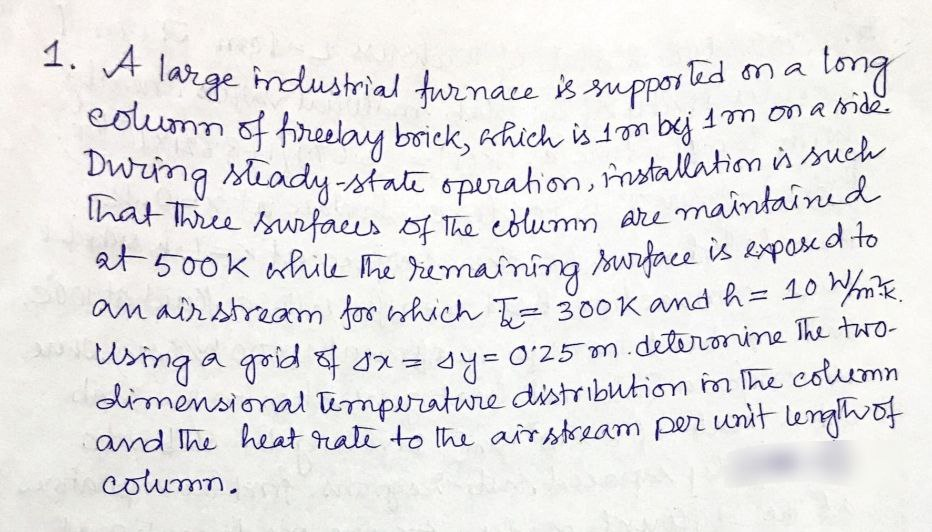 1. A large industrial furnace is supported on a long
column of fireclay brick, which is 1m by 1m on a side.
During steady-state operation, installation is such
that three surfaces of the column are maintained
at 500K while the remaining surface is exposed to
an airstream for which T∞ = 300K and h = 10 W/m²K.
Using a grid of Δx = Δy = 0.25 m. determine the two-
dimensional temperature distribution in the column
and the heat rate to the airstream per unit length of
column.